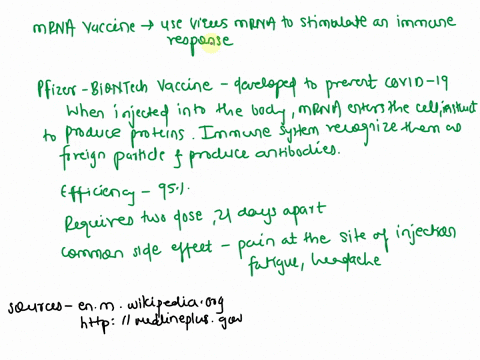 mRNA vaccine → use virus mRNA to stimulate an immune
response
Pfizer-BIONTech Vaccine - developed to prevent COVID-19
When injected into the body, mRNA enters the cell, instruct
to produce proteins. Immune system recognize them as
foreign particle & produce antibodies.
Efficiency - 95%.
Requires two dose, 21 days apart
common side effect - pain at the site of injection
fatigue, headache
sources - en.m.wikipedia.org
http://medlineplus.gov